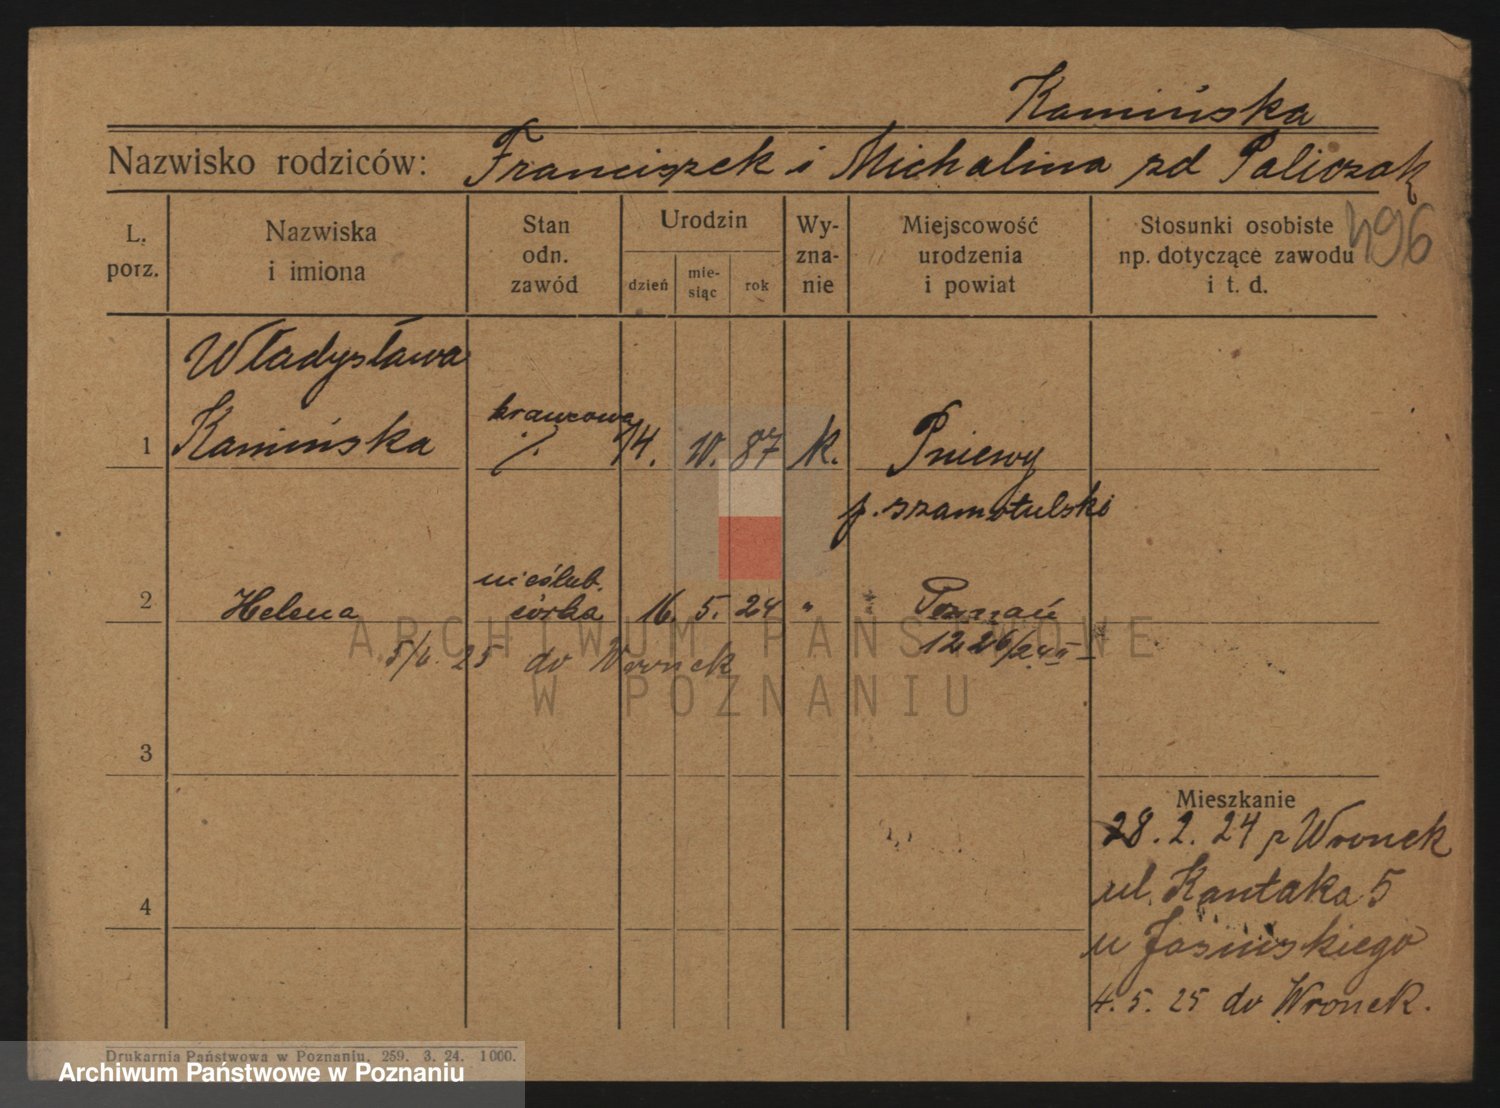 Kamińska
Nazwisko rodziców: Franciszek i Michalina zd Paliczak
L. porz.
Nazwiska i imiona
Stan odn. zawód
Urodzin
dzień
mie-siąc
rok
Wy-zna-nie
Miejscowość urodzenia i powiat
Stosunki osobiste np. dotyczące zawodu i t. d.
496
Władysława
1 Kamińska krawcowa /. 14. IV. 87 k. Pniewy
p. szamotulski
2 Helena nieślub. córka 16. 5. 24 " Poznań
5/6. 25 do Wronek 1226/24
3
Mieszkanie
28. 2. 24 z Wronek
ul. Kantaka 5
4
u Jasińskiego
4. 5. 25 do Wronek.
Drukarnia Państwowa w Poznaniu. 259. 3. 24. 1000.
ARCHIWUM PAŃSTWOWE
W POZNANIU
Archiwum Państwowe w Poznaniu